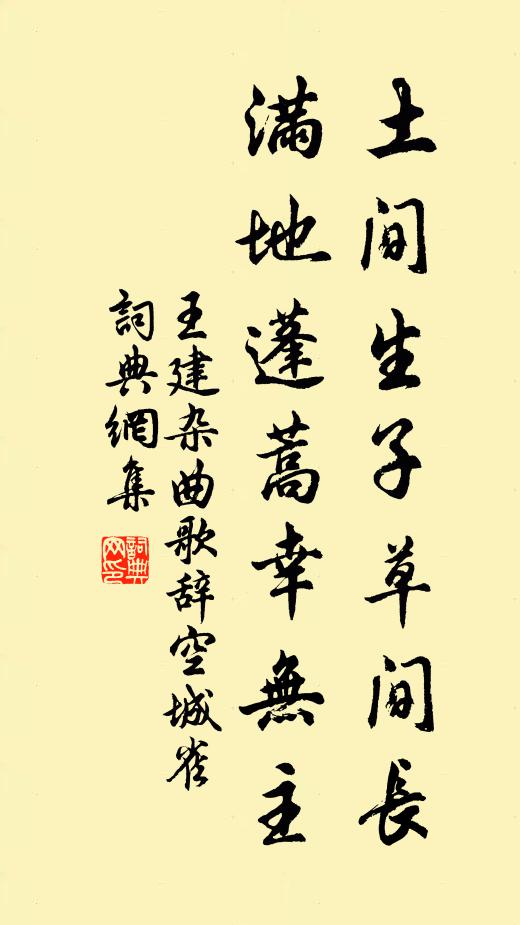 土间生子草间長
满地蓬蒿幸無主
王建杂曲歌辞空城雀
詞典網集
詞典
网印